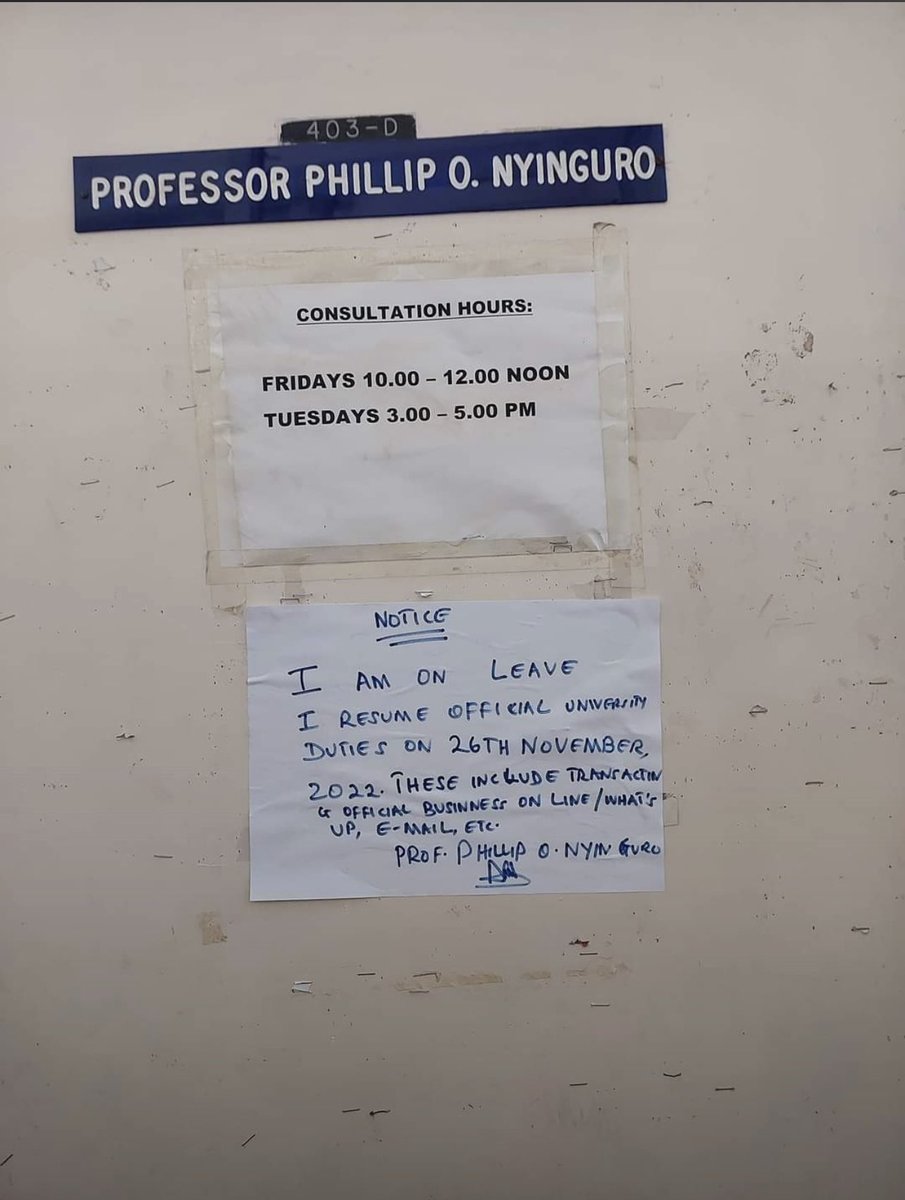 403-D
PROFESSOR PHILLIP O. NYINGURO
CONSULTATION HOURS:
FRIDAYS 10.00 – 12.00 NOON
TUESDAYS 3.00 – 5.00 PM
NOTICE
I AM ON LEAVE
I RESUME OFFICIAL UNIVERSITY
DUTIES ON 26TH NOVEMBER,
2022. THESE INCLUDE TRANSACTIN
G OFFICIAL BUSINNESS ON LINE/WHAT'S
UP, E-MAIL, ETC.
PROF. PHILLIP O. NYINGURO